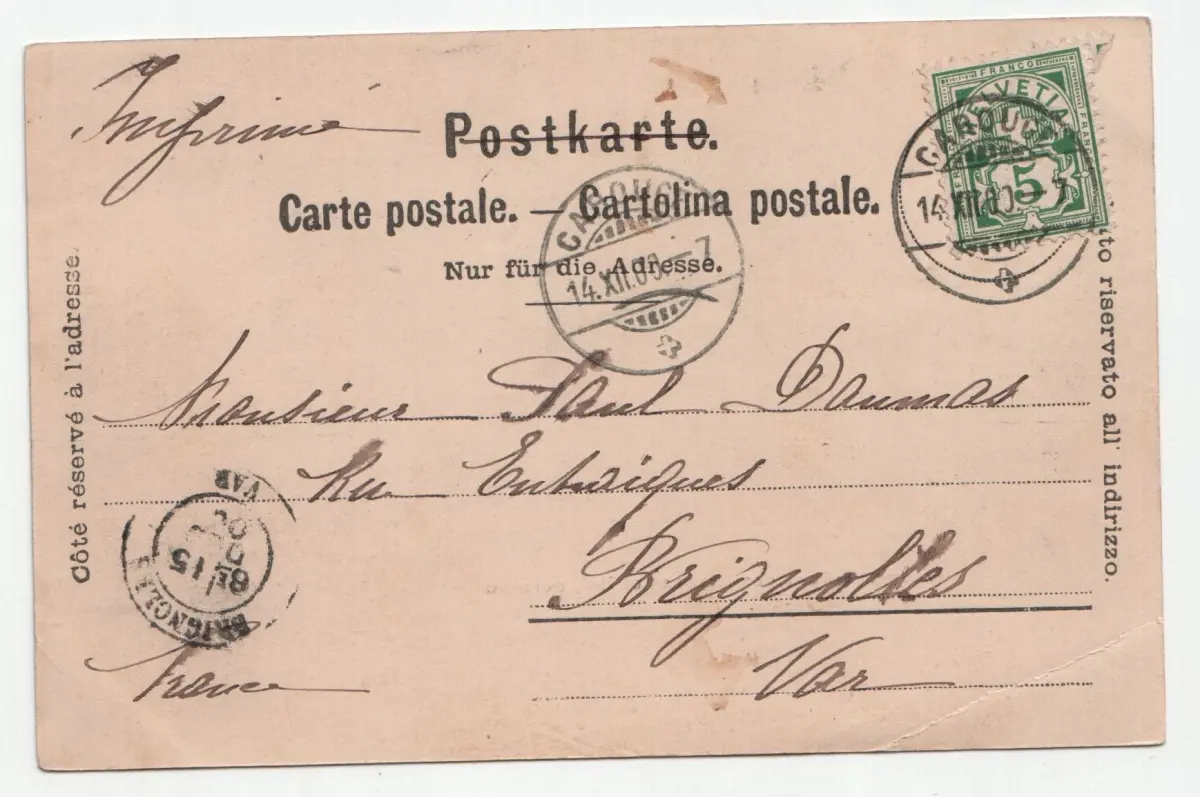 Imprimé
Postkarte.
Carte postale. — Cartolina postale.
Nur für die Adresse.
FRANCO
HELVETIA
FRANCO
5
CAROUGE
14.XII.00.–7
CAROUGE
14.XII.00.–7
Côté réservé à l'adresse.
riservato all' indirizzo.
Monsieur Paul Daumas
Rue Entraigues
Brignolles
Var
France
BRIGNOLES
15
VAR